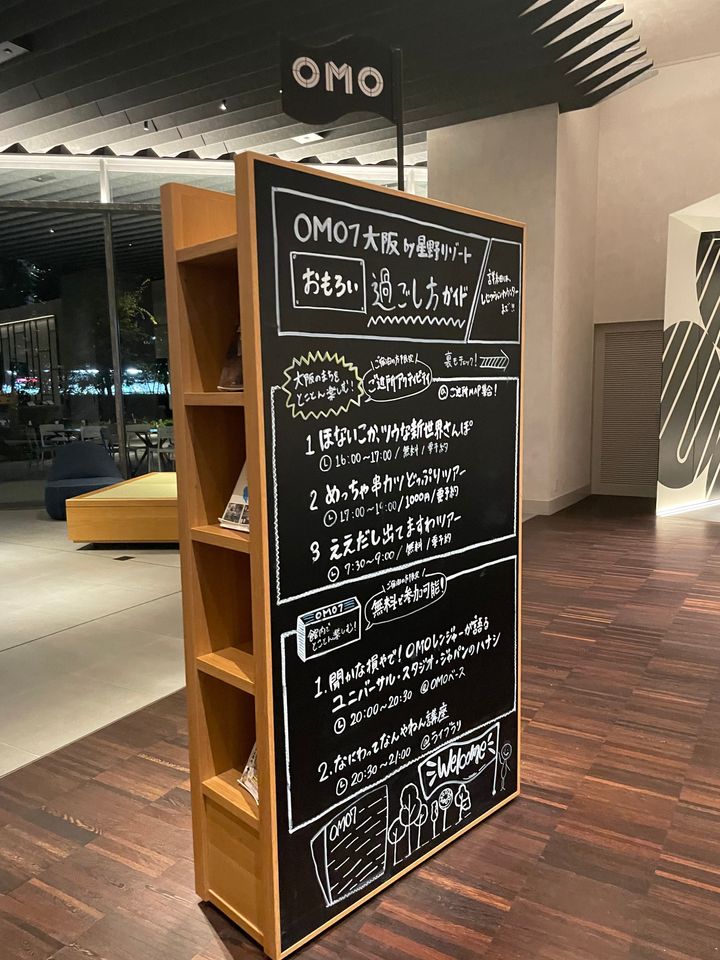 OMO
OMO7大阪 by 星野リゾート
おもろい
過ごし方ガイド
大阪のまちを
とことん楽しむ!
ご宿泊の方限定
ご近所アクティビティ
裏もチェック!
ご近所MAP集合!
1 ほないこか、ツウな新世界さんぽ
16:00~17:00/無料/要予約
2 めっちゃ串カツどっぷりツアー
/1000円/要予約
3 ええだし出てますわツアー
7:30~9:00/無料/要予約
OMO7
館内で
とことん楽しむ!
ご宿泊の方限定
無料で参加可能!
1. 聞かな損やで!OMOレンジャーが語る
ユニバーサル・スタジオ・ジャパンのハナシ
20:00~20:30 @OMOベース
2. なにわってなんやねん講座
20:30~21:00 @ライブラリ
Welcome
OMO7